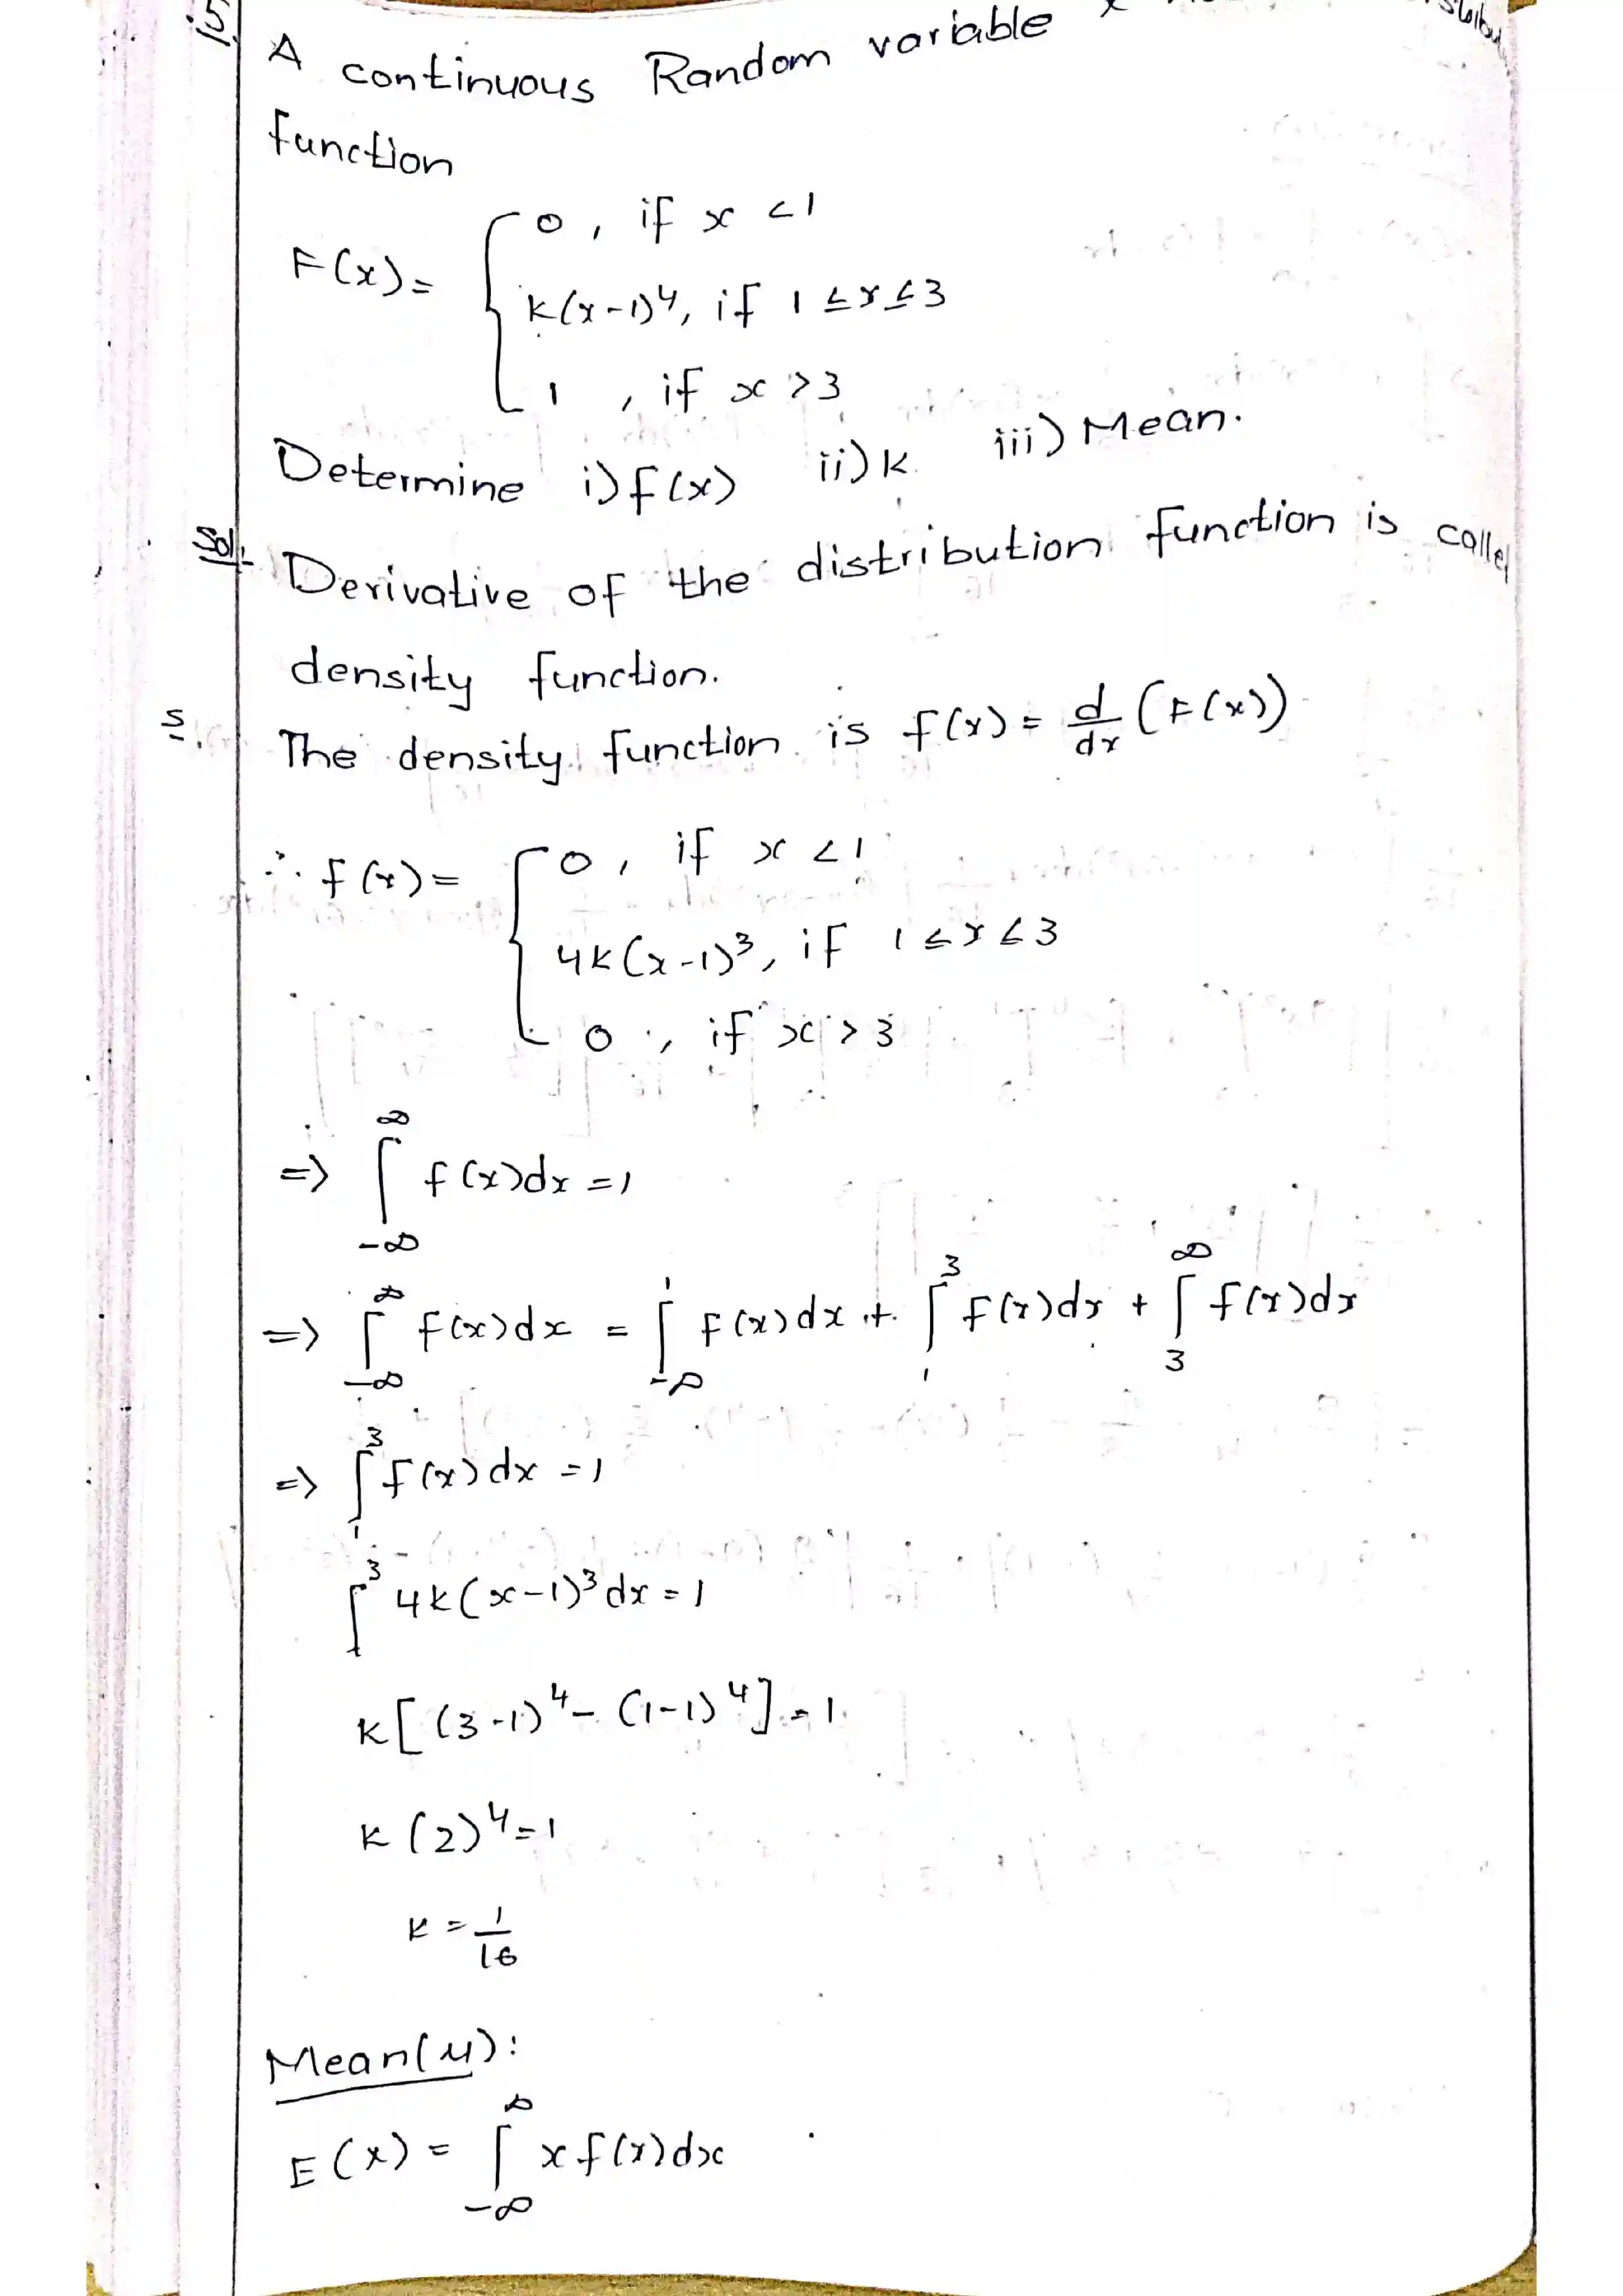 15.
A continuous Random variable x
function
F(x) = { 0 , if x < 1
k(x-1)⁴, if 1 ≤ x ≤ 3
1 , if x > 3
Determine i) f(x) ii) k iii) Mean.
Sol:- Derivative of the distribution function is called
density function.
The density function is f(x) = d/dx (F(x))
∴ f(x) = { 0 , if x < 1
4k(x-1)³, if 1 ≤ x ≤ 3
0 , if x > 3
=> ∫_{-∞}^{∞} f(x)dx = 1
=> ∫_{-∞}^{∞} f(x)dx = ∫_{-∞}^{1} f(x)dx + ∫_{1}^{3} f(x)dx + ∫_{3}^{∞} f(x)dx
=> ∫_{1}^{3} f(x)dx = 1
∫_{1}^{3} 4k(x-1)³dx = 1
k[(3-1)⁴ - (1-1)⁴] = 1
k(2)⁴ = 1
k = 1/16
Mean(μ):
E(x) = ∫_{-∞}^{∞} x f(x)dx